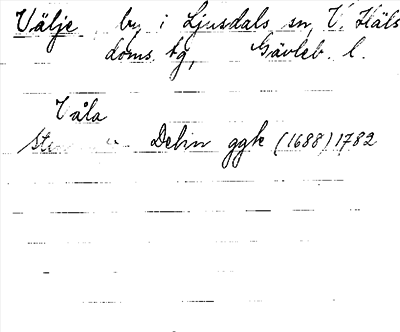 Välje by i Ljusdals sn, V. Häls
doms. tg, Gävleb. l.
Våla
Dehn ggk (1688) 1782